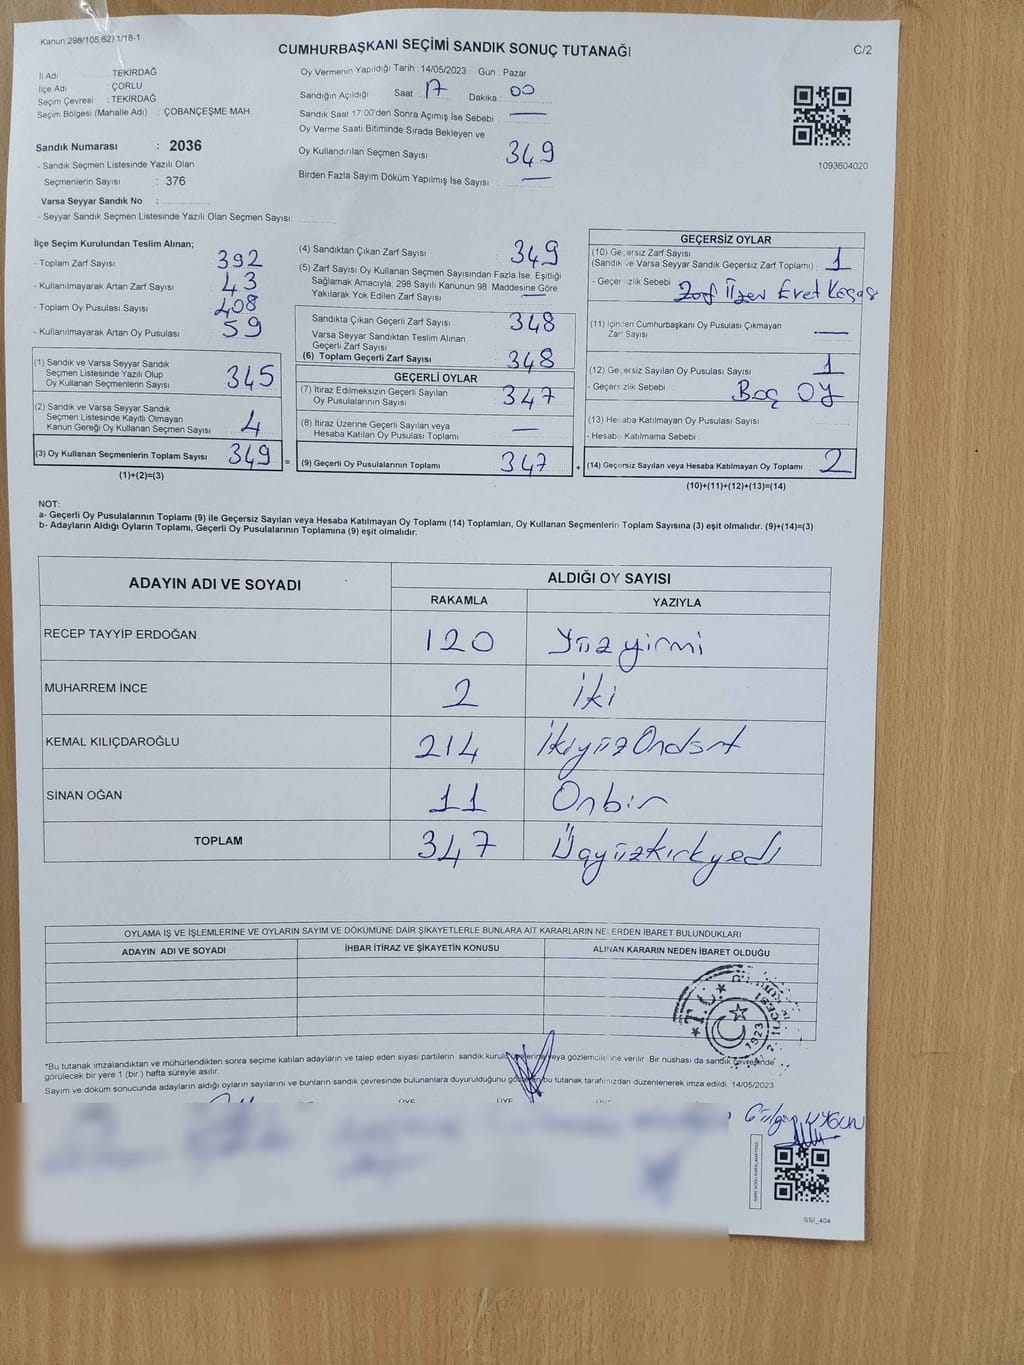 Kanun:298/105,627.1/18-1
CUMHURBAŞKANI SEÇİMİ SANDIK SONUÇ TUTANAĞI
C/2
İl Adı : TEKİRDAĞ
İlçe Adı : ÇORLU
Seçim Çevresi : TEKİRDAĞ
Seçim Bölgesi (Mahalle Adı) : ÇOBANÇEŞME MAH.
Sandık Numarası : 2036
- Sandık Seçmen Listesinde Yazılı Olan
Seçmenlerin Sayısı : 376
Varsa Seyyar Sandık No :
- Seyyar Sandık Seçmen Listesinde Yazılı Olan Seçmen Sayısı:
Oy Vermenin Yapıldığı Tarih :14/05/2023 Gün : Pazar
Sandığın Açıldığı Saat : 17 Dakika : 00
Sandık Saat 17:00'den Sonra Açımış İse Sebebi : —
Oy Verme Saati Bitiminde Sırada Bekleyen ve
Oy Kullandırılan Seçmen Sayısı : 349
Birden Fazla Sayım Döküm Yapılmış İse Sayısı : —
1093604020
İlçe Seçim Kurulundan Teslim Alınan;
- Toplam Zarf Sayısı : 392
- Kullanılmayarak Artan Zarf Sayısı : 43
- Toplam Oy Pusulası Sayısı : 408
- Kullanılmayarak Artan Oy Pusulası : 59
(1) Sandık ve Varsa Seyyar Sandık
Seçmen Listesinde Yazılı Olup
Oy Kullanan Seçmenlerin Sayısı : 345
(2) Sandık ve Varsa Seyyar Sandık
Seçmen Listesinde Kayıtlı Olmayan
Kanun Gereği Oy Kullanan Seçmen Sayısı : 4
(3) Oy Kullanan Seçmenlerin Toplam Sayısı : 349
(1)+(2)=(3)
(4) Sandıktan Çıkan Zarf Sayısı : 349
(5) Zarf Sayısı Oy Kullanan Seçmen Sayısından Fazla İse, Eşitliği
Sağlamak Amacıyla, 298 Sayılı Kanunun 98. Maddesine Göre
Yakılarak Yok Edilen Zarf Sayısı : —
Sandıkta Çıkan Geçerli Zarf Sayısı : 348
Varsa Seyyar Sandıktan Teslim Alınan
Geçerli Zarf Sayısı :
(6) Toplam Geçerli Zarf Sayısı : 348
GEÇERLİ OYLAR
(7) İtiraz Edilmeksizin Geçerli Sayılan
Oy Pusulalarının Sayısı : 347
(8) İtiraz Üzerine Geçerli Sayılan veya
Hesaba Katılan Oy Pusulası Toplamı : —
= (9) Geçerli Oy Pusulalarının Toplamı : 347
GEÇERSİZ OYLAR
(10) Geçersiz Zarf Sayısı
(Sandık ve Varsa Seyyar Sandık Geçersiz Zarf Toplamı) : 1
- Geçersizlik Sebebi : Zarf Üzeri Evet Kaşası
(11) İçinden Cumhurbaşkanı Oy Pusulası Çıkmayan
Zarf Sayısı : —
(12) Geçersiz Sayılan Oy Pusulası Sayısı : 1
- Geçersizlik Sebebi : Boş OY
(13) Hesaba Katılmayan Oy Pusulası Sayısı :
- Hesaba Katılmama Sebebi :
+ (14) Geçersiz Sayılan veya Hesaba Katılmayan Oy Toplamı : 2
(10)+(11)+(12)+(13)=(14)
NOT:
a- Geçerli Oy Pusulalarının Toplamı (9) ile Geçersiz Sayılan veya Hesaba Katılmayan Oy Toplamı (14) Toplamları, Oy Kullanan Seçmenlerin Toplam Sayısına (3) eşit olmalıdır. (9)+(14)=(3)
b- Adayların Aldığı Oyların Toplamı, Geçerli Oy Pusulalarının Toplamına (9) eşit olmalıdır.
ADAYIN ADI VE SOYADI
ALDIĞI OY SAYISI
RAKAMLA YAZIYLA
RECEP TAYYİP ERDOĞAN 120 Yüzyirmi
MUHARREM İNCE 2 İki
KEMAL KILIÇDAROĞLU 214 İkiyüzOndört
SİNAN OĞAN 11 Onbir
TOPLAM 347 Üçyüzkırkyedi
OYLAMA İŞ VE İŞLEMLERİNE VE OYLARIN SAYIM VE DÖKÜMÜNE DAİR ŞİKAYETLERLE BUNLARA AİT KARARLARIN NELERDEN İBARET BULUNDUKLARI
ADAYIN ADI VE SOYADI İHBAR İTİRAZ VE ŞİKAYETİN KONUSU ALINAN KARARIN NEDEN İBARET OLDUĞU
T.C.
1923
*Bu tutanak imzalandıktan ve mühürlendikten sonra seçime katılan adayların ve talep eden siyasi partilerin sandık kurulu üyelerine veya gözlemcilerine verilir .Bir nüshası da sandık çevresinde
görülecek bir yere 1 (bir ) hafta süreyle asılır.
Sayım ve döküm sonucunda adayların aldığı oyların sayılarını ve bunların sandık çevresinde bulunanlara duyurulduğunu gösteren bu tutanak tarafımızdan düzenlenerek imza edildi. 14/05/2023
ÜYE ÜYE
UYGUN
SSI_404